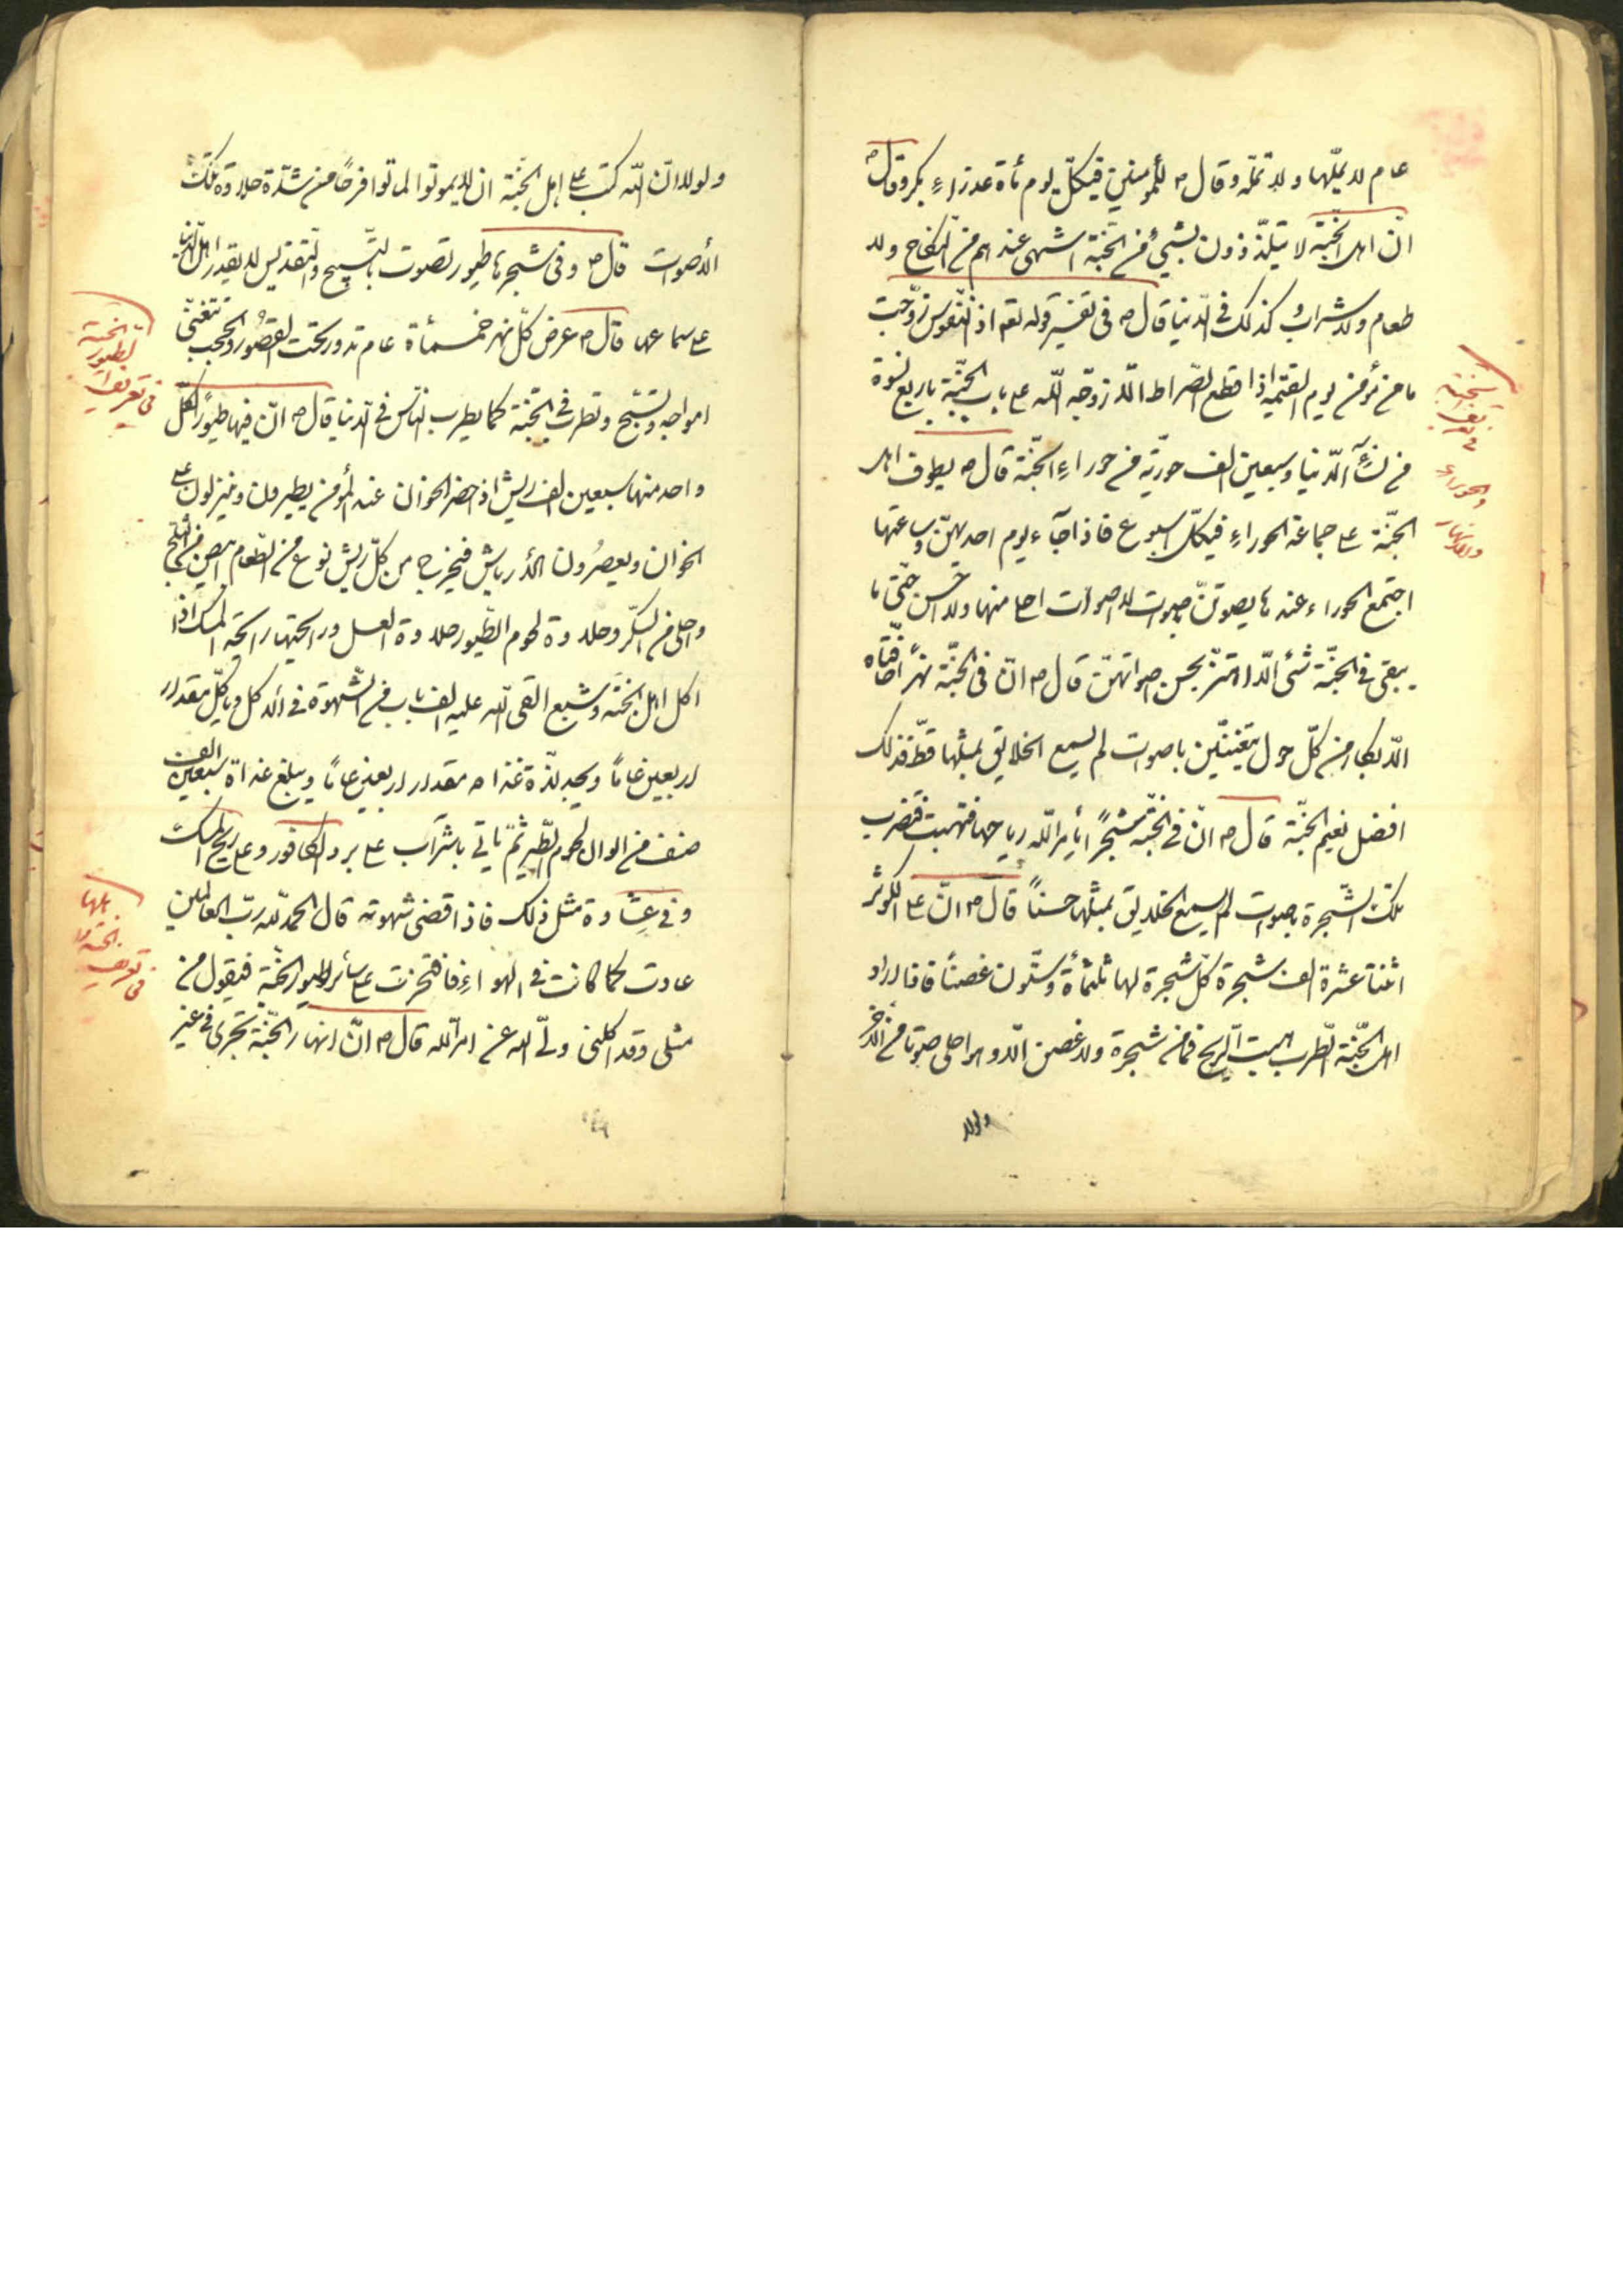 عام لا يملّها ولا تملّه وقال ص للمؤمنين فيكلّ يوم مأة عذراءٍ بكر وقال ص
انّ اهل الجنّة لا يتلذّذون بشيئ من الجنّة اشهى عندهم من النّكاح ولا
طعام ولا شراب وكذلك في الدّنيا قال ص في تفسير قوله تعه اذ النّفوس زوّجت
ما من مؤمن يوم القيمة اذا قطع الصّراط الّا زوّجه اللّه على باب الجنّة باربع نسوة
من نسآءِ الدّنيا وسبعين الف حوريّة من حوراءِ الجنّة قال ص يطوف اهل
الجنّة على جماعة الحوراءِ فيكلّ اسبوع فاذا جآء يوم احديهنّ وساعتها
اجتمع الحوراء عندها يصوتنّ بصوت لا صوات احلى منها ولا احسن حتّى ما
يبقى في الجنّة شئ الّا اهتزّ بحسن اصواتهنّ قال ص انّ في الجنّة نهراً حافّتاه
الابكار من كلّ حول يتغنيّن باصوات لم يسمع الخلايق بمثلها قطّ فذلك
افضل نعيم الجنّة قال ص انّ في الجنّة شجراً يأمر اللّه رياحها فتهبت فتضرب
تلك الشّجرة بصوات لم يسمع الخلايق بمثلها حسناً قال ص انّ على الكوثر
اثنتا عشرة الف شجرة كلّ شجرة لها ثلثمأة وستّون غصناً فاذا اراد
اهل الجنّة الطّرب هبّت الرّيح فما من شجرة ولا غصن الّا وهو احلى صوتا من الآخر
ولولا
في تعريف
الجنّة
والحوراءِ
ولولا انّ اللّه كتب على اهل الجنّة ان لا يموتوا لماتوا فرحًا من شدّة حلاوة تلك
الأصوات قال ص وفي شجرها طيور تصوت بالتّسبيح والتّقديس لا يقدر اهل الدّنيا
على سماعها قال ص عرض كلّ نهر خمسمأة عام تدور تحت القصُور والحجب تتغنّى
امواجه وتسبّح وتطرب في الجنّة كما يطرب النّاس في الدّنيا قال ص انّ فيها طيورًا لكلّ
واحد منها سبعين الف ريش اذ احضر الخوان عند المؤمن يطيرون وينزلون على
الخوان ويعصرُون الأرياش فيخرج من كلّ ريش نوع من الطّعام ابيض من الثّلج
واحلى من السّكّر وحلاوة لحوم الطّيور حلاوة العسل ورايحتها رايحة المسك اذا
اكل اهل الجنّة وشبع القى اللّه عليه الف باب من الشّهوة في الاكل ويأكل مقدار
اربعين عامًا ويجد لذّة غذاه مقدار اربعين عامًا ويبلغ غذاه سبعين الف
صنف من الوان لحوم الطّير ثمّ ياتي باشرآب على برد الكافور وعلى ريح المسك
وفي عِشاوة مثل ذلك فاذا قضى شهوته قال الحمد للّه ربّ العالمين
عادت كما كانت في الهواءِ فافتخرت على سائر طيور الجنّة فيقول من
مثلى وقد اكلنى ولىّ اللّه عن امر اللّه قال ص انّ انهار الجنّة تجرى في غير
في تعريف
الطيور
الجنّة
في تعريف